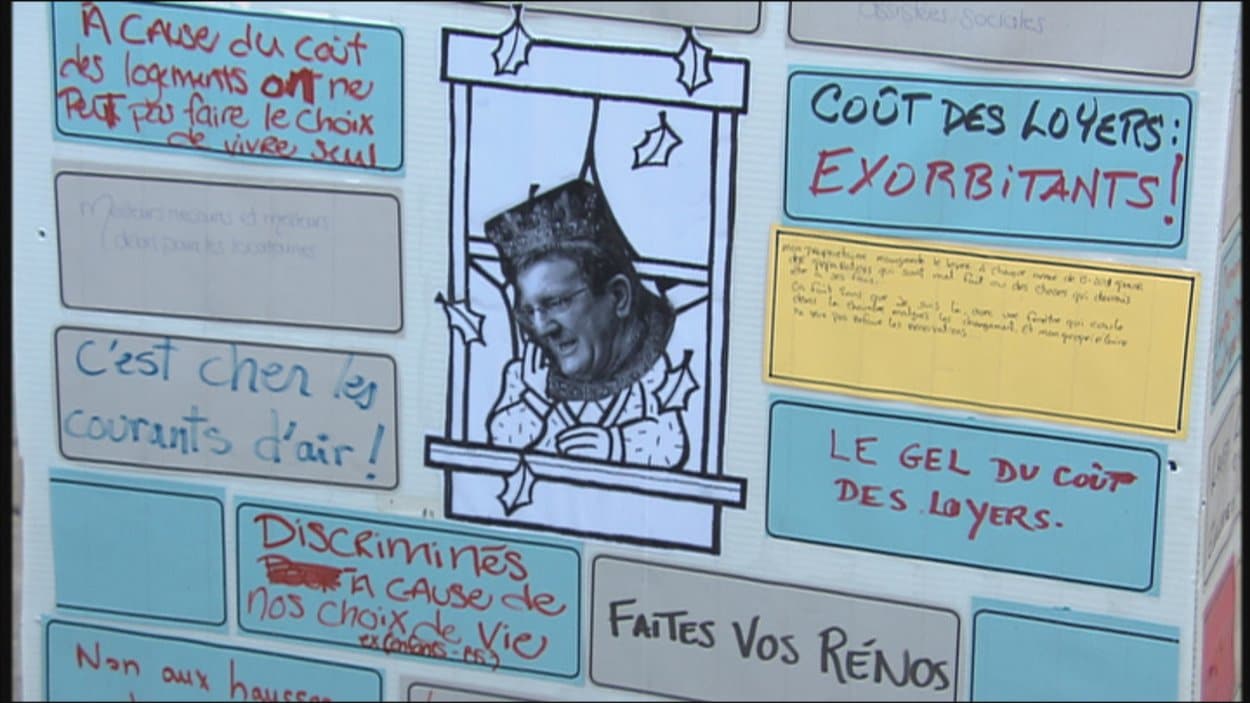 assistées sociales
À CAUSE du coût
des logements ont ne
Peut pas faire le choix
de vivre seul
COÛT DES LOYERS:
EXORBITANTS!
Meilleurs recours et meilleurs
pour les locataires
mon propriétaire le loyer à chaque
qui sont mal fait ou des choses qui
à ses frais.
Ça fait ans que je suis là, une fenêtre qui coule
dans la chambre malgré les changement, et mon propriétaire
ne veut pas les rénovations
C'est cher les
courants d'air!
LE GEL DU COÛT
DES LOYERS.
DiSCRiMiNÉS
À CAUSE de
nos choix de Vie
ex(enfants-es)
FAITES VOS RÉNOS
Non aux hausses